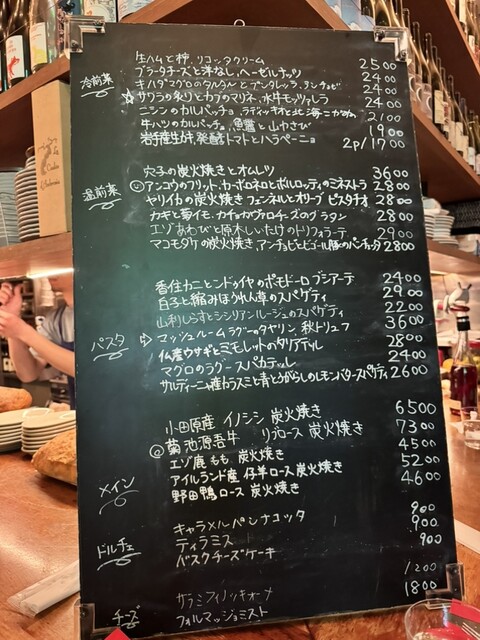 冷前菜
生ハムと柿、リコッタクリーム 2500
ブラータチーズと洋なし、ヘーゼルナッツ 2400
キハダマグロのタルタルとプンタレッラ、アンチョビ 2400
☆サワラの炙りとカブのマリネ、水牛モッツァレラ 2400
ニシンのカルパッチョ、ラディッキオと北海こがね 2100
牛ハツのカルパッチョ、魚醤と山わさび 1900
岩手産生カキ、発酵トマトとハラペーニョ 2p/1700
温前菜
穴子の炭火焼きとオムレツ 3600
アンコウのフリット、カーボロネロとボルロッティのミネストラ 2800
ヤリイカの炭火焼き フェンネルとオリーブ ピスタチオ 2800
カキと菊イモ、カチョカヴァロチーズのグラタン 2800
エゾあわびと原木しいたけのトリフォラーテ 2900
マコモダケの炭火焼き、アンチョビとビゴール豚のパンチェッタ 2800
パスタ
香住カニとンドゥイヤのポモドーロ ブシアーテ 2400
白子と縮みほうれん草のスパゲティ 2900
山利しらすとシシリアンルージュのスパゲティ 2200
⇨マッシュルームラグーのタヤリン、秋トリュフ 3600
仏産ウサギとミモレットのタリアテッレ 2800
マグロのラグー スパカテッレ 2400
サルディーニャ産カラスミと青とうがらしのレモンバタースパゲティ 2600
メイン
小田原産 イノシシ 炭火焼き 6500
菊池源吾牛 リブロース 炭火焼き 7300
エゾ鹿もも 炭火焼き 4500
アイルランド産 仔羊ロース 炭火焼き 5200
野田鴨ロース 炭火焼き 4600
ドルチェ
キャラメルパンナコッタ 900
ティラミス 900
バスクチーズケーキ 900
チーズ
サラミフィノッキオーナ 1200
フォルマッジョミスト 1800